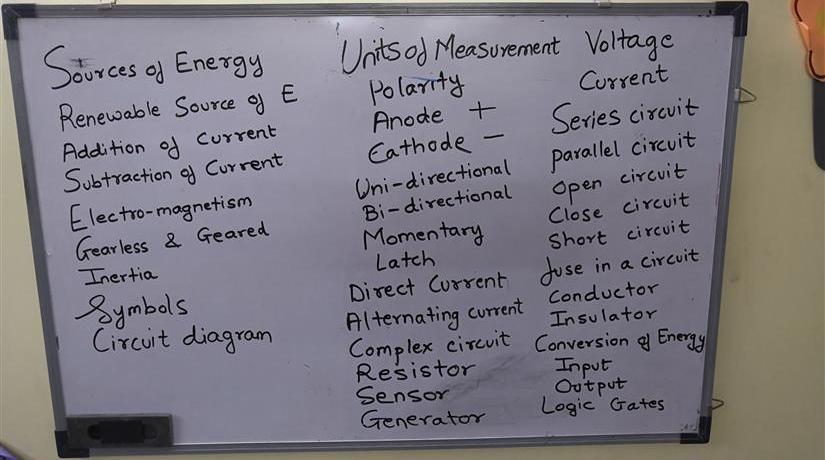 Sources of Energy
Renewable Source of E
Addition of Current
Subtraction of Current
Electro-magnetism
Gearless & Geared
Inertia
Symbols
Circuit diagram
Units of Measurement
Polarity
Anode +
Cathode -
Uni-directional
Bi-directional
Momentary
Latch
Direct Current
Alternating current
Complex circuit
Resistor
Sensor
Generator
Voltage
Current
Series circuit
parallel circuit
open circuit
Close circuit
Short circuit
fuse in a circuit
Conductor
Insulator
Conversion of Energy
Input
Output
Logic Gates